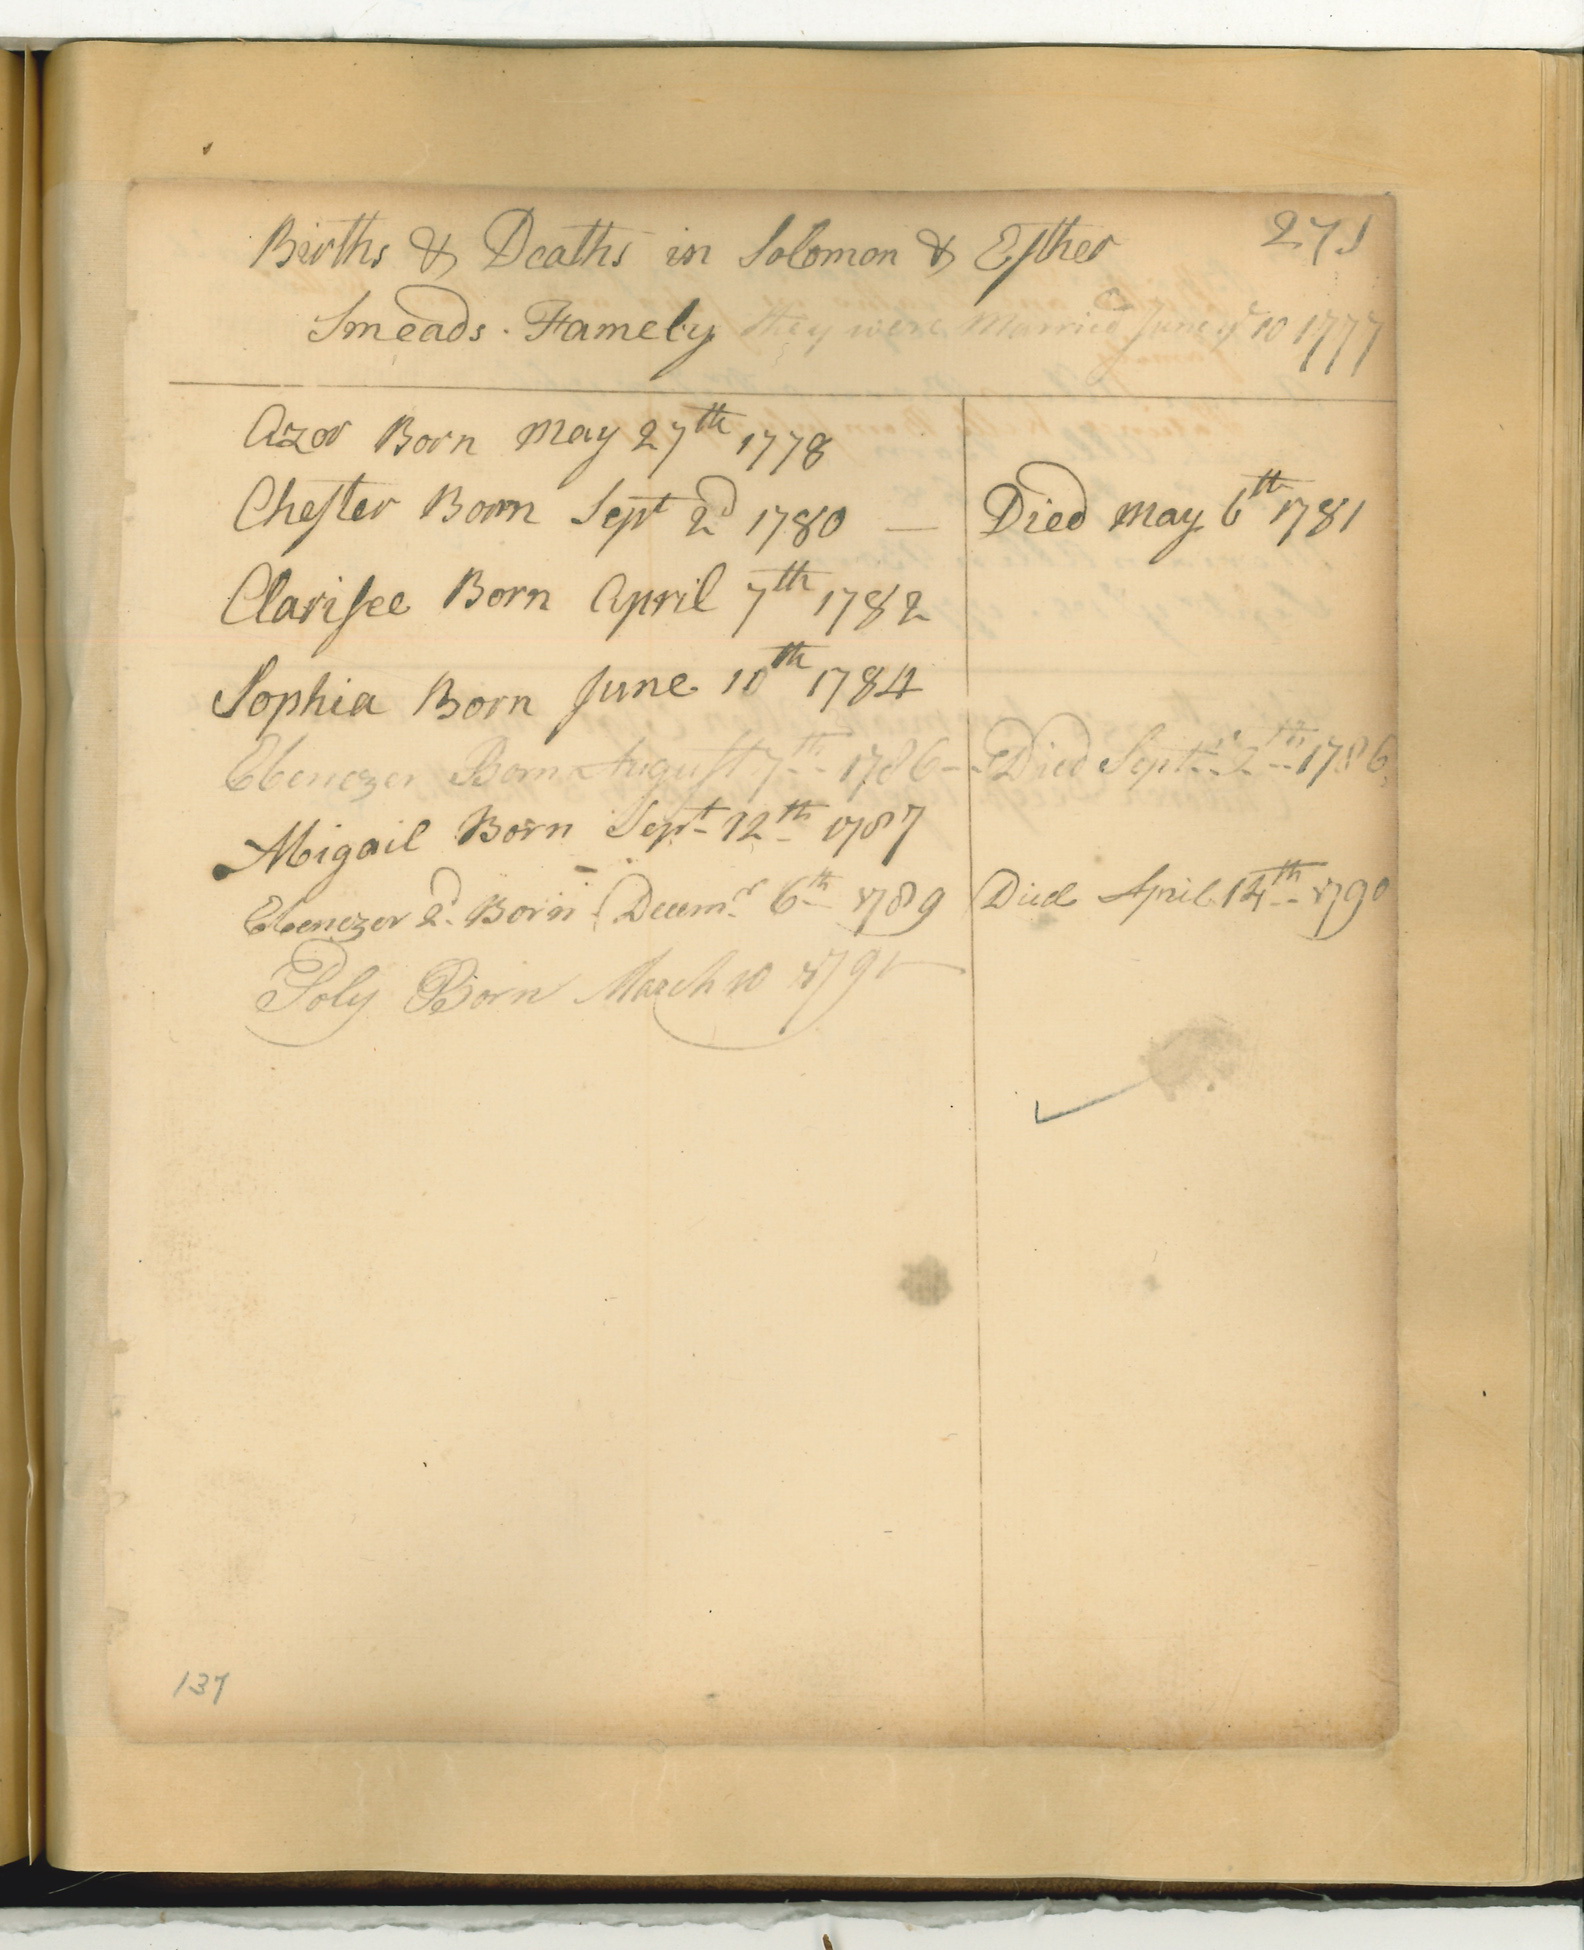 271
Births & Deaths in Solomon & Esther
Smeads. Famely they were Married June ye 10 1777
Azor Born may 27th 1778
Chester Born Sept 2d 1780 — Died may 6th 1781
Clarisee Born April 7th 1782
Sophia Born June 10th 1784
Ebenezer Born August 7th 1786 -- Died Septr 2 1786
Abigail Born Sept 12th 1787
Ebenezer 2d Born Decemr 6th 1789 Died April 14th 1790
Poly Born March 10 1791
137